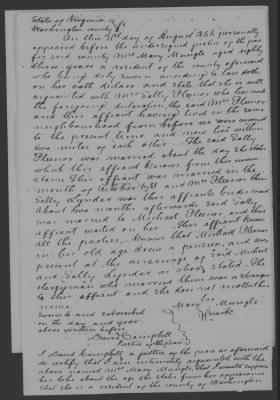 State of Virginia
Washington county
On this day of August 1854 personally
appeared before the undersigned justice of the peace
for said county Mrs Mary Mungle aged eighty
three years a resident of the county aforesaid
who being duly sworn according to law doth
on her oath declare and state that she is well
acquainted with Mrs Sally who has made
the foregoing declaration, the said Mrs
and this affiant having lived in the same
neighbourhood from before we were married
to the present time and now live within
two miles of each other. The said Sally
was married about the day she states
which this affiant knows from this circum
stance this affiant was married in the
month of October 1788 and Mrs then
Sally was this affiants bridesmaid
About two months afterwards said Sally
was married to Michael and this
affiant waited on her. This affiant knew
all the parties, knows that Michael
in his old age drew a pension, and was
present at the marriage of said Michael
and Sally as above stated. The
clergyman who married them was a stranger
to this affiant and she does not recollect his
name
her
Mary Mungle
mark
Sworn to and subscribed
on the day and year
above written before
David Campbell
Justice of the peace
I David Campbell a justice of the peace as aforesaid
do certify that I am intimately acquainted with the
above named Mrs Mary Mungle, that I would suppose
her to be about the age she states from her appearance
that she is a resident of the county of Washington